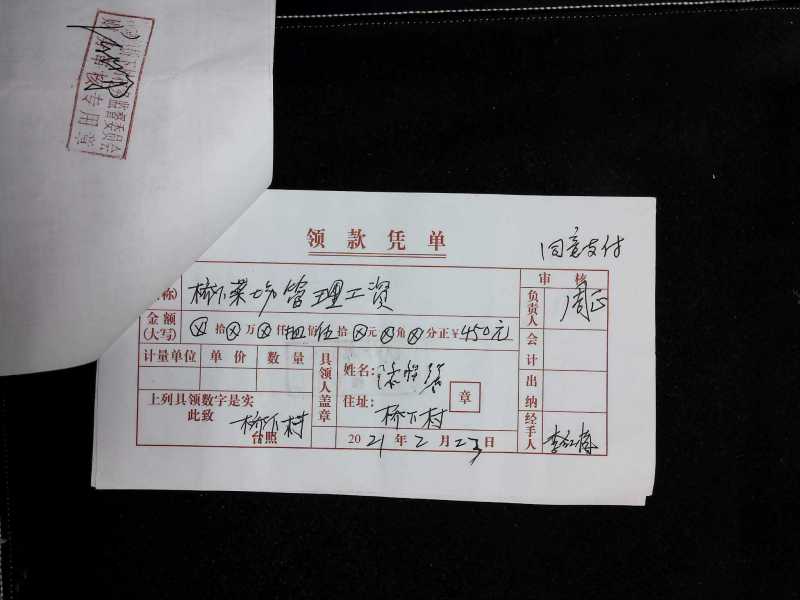 监督委员会
审核专用章
领款凭单
同意支付
称)
桥下菜场管理工资
审核
负责人
周正
金额(大写)
⊗拾⊗万⊗仟肆佰伍拾⊗元⊗角⊗分正¥450元
会计
计量单位 单价 数量
具领人盖章
姓名:
章
出纳
上列具领数字是实
此致
桥下村
台照
住址:
桥下村
2021年2月23日
经手人